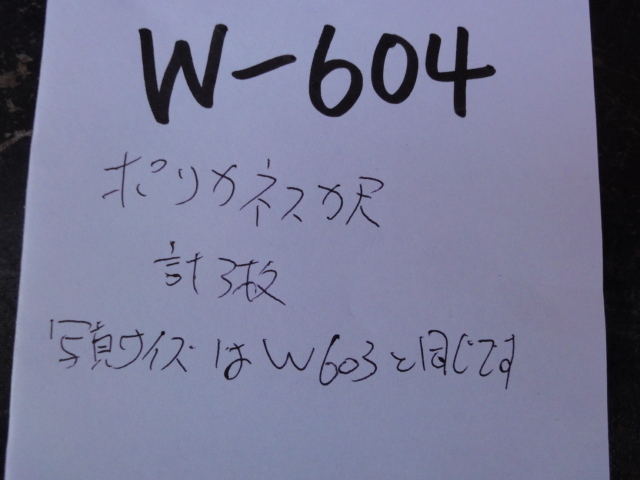 W-604
ポリカネスカ尺
計3枚
写真サイズはW603と同じです